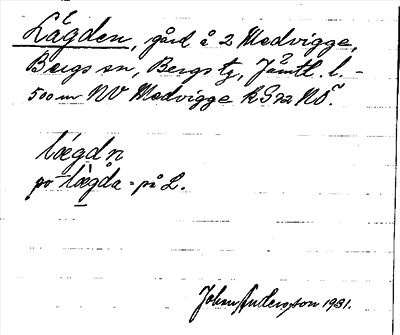 Lägden, gård å 2 Medvigge,
Bergs sn, Bergs tg, Jämtl. l. –
500 m NV Medvigge k S22 NO.
lǽgdn
po lægda = på L.
Johan Anderson 1931.